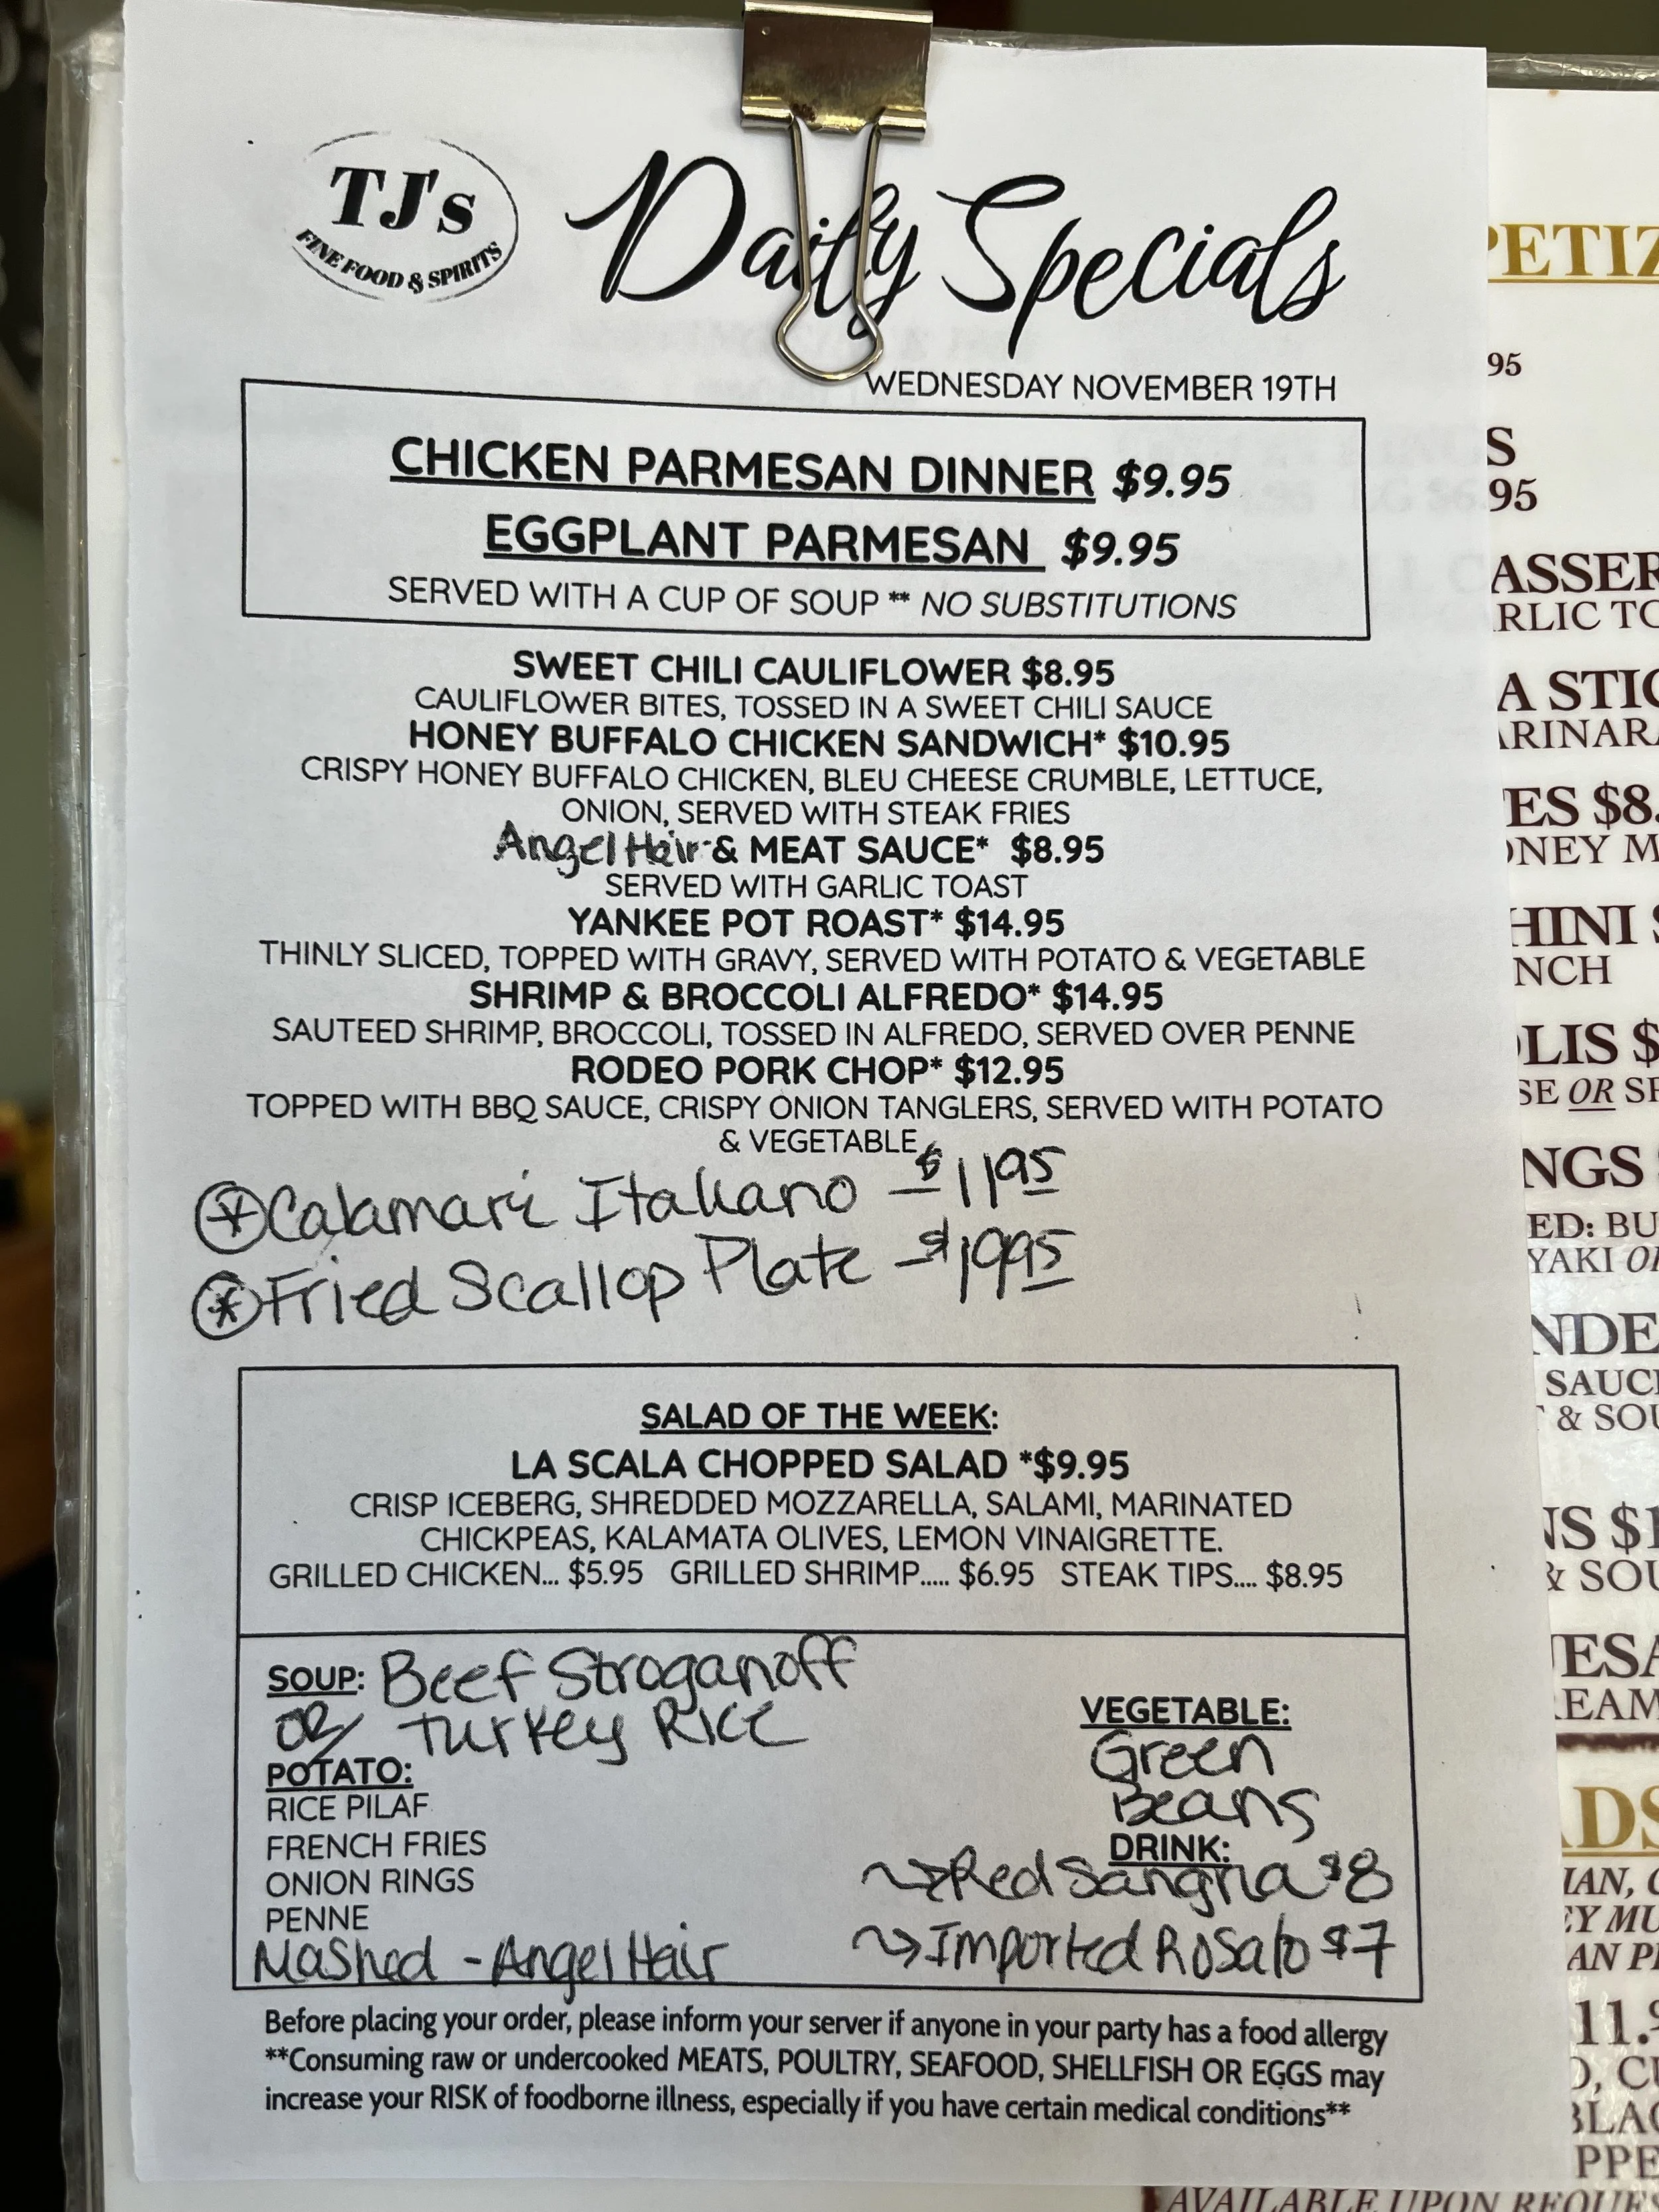 TJ's
FINE FOOD & SPIRITS
Daily Specials
WEDNESDAY NOVEMBER 19TH
CHICKEN PARMESAN DINNER $9.95
EGGPLANT PARMESAN $9.95
SERVED WITH A CUP OF SOUP ** NO SUBSTITUTIONS
SWEET CHILI CAULIFLOWER $8.95
CAULIFLOWER BITES, TOSSED IN A SWEET CHILI SAUCE
HONEY BUFFALO CHICKEN SANDWICH* $10.95
CRISPY HONEY BUFFALO CHICKEN, BLEU CHEESE CRUMBLE, LETTUCE,
ONION, SERVED WITH STEAK FRIES
Angel Hair & MEAT SAUCE* $8.95
SERVED WITH GARLIC TOAST
YANKEE POT ROAST* $14.95
THINLY SLICED, TOPPED WITH GRAVY, SERVED WITH POTATO & VEGETABLE
SHRIMP & BROCCOLI ALFREDO* $14.95
SAUTEED SHRIMP, BROCCOLI, TOSSED IN ALFREDO, SERVED OVER PENNE
RODEO PORK CHOP* $12.95
TOPPED WITH BBQ SAUCE, CRISPY ONION TANGLERS, SERVED WITH POTATO
& VEGETABLE
* Calamari Italiano - $11.95
* Fried Scallop Plate - $19.95
SALAD OF THE WEEK:
LA SCALA CHOPPED SALAD *$9.95
CRISP ICEBERG, SHREDDED MOZZARELLA, SALAMI, MARINATED
CHICKPEAS, KALAMATA OLIVES, LEMON VINAIGRETTE.
GRILLED CHICKEN... $5.95 GRILLED SHRIMP..... $6.95 STEAK TIPS.... $8.95
SOUP: Beef Stroganoff
OR Turkey Rice
POTATO:
RICE PILAF
FRENCH FRIES
ONION RINGS
PENNE
Mashed - Angel Hair
VEGETABLE:
Green
Beans
DRINK:
Red Sangria $8
Imported Rosato $7
Before placing your order, please inform your server if anyone in your party has a food allergy
**Consuming raw or undercooked MEATS, POULTRY, SEAFOOD, SHELLFISH OR EGGS may
increase your RISK of foodborne illness, especially if you have certain medical conditions**
PETIZ
95
S
95
ASSER
RLIC TO
A STIC
ARINARA
ES $8.
ONEY M
HINI S
NCH
LIS $
SE OR SP
NGS $
ED: BU
YAKI OR
NDE
SAUCE
& SOU
NS $1
& SOU
ESA
REAM
DS
IAN, C
EY MU
AN P
11.9
O, CU
BLAC
PPE
AVAILABLE UPON REQUES